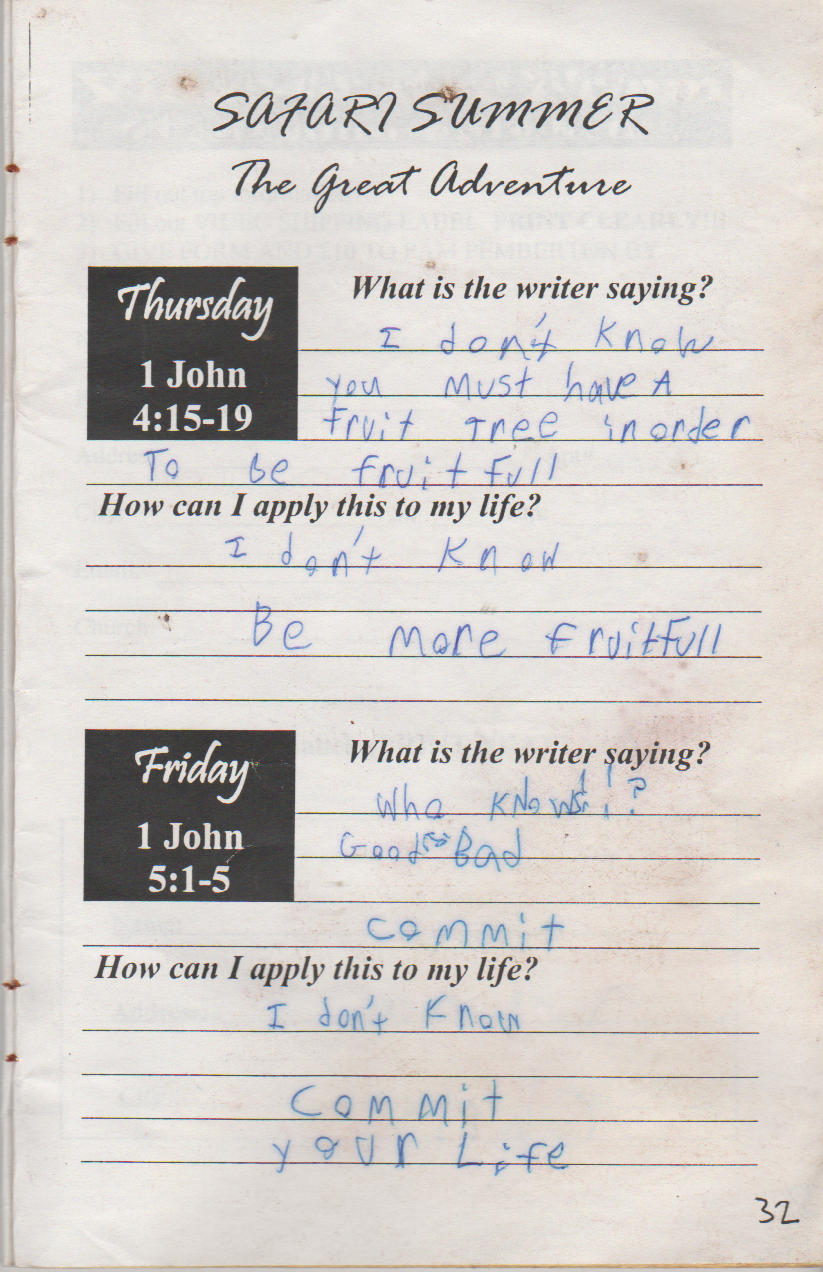 SAFARI SUMMER
The Great Adventure
Thursday
1 John
4:15-19
What is the writer saying?
I don't Know
you must have A
Fruit Tree in order
To Be fruit full
How can I apply this to my life?
I don't Know
Be more fruitfull
Friday
1 John
5:1-5
What is the writer saying?
Who Knows!!?
Good Bad
commit
How can I apply this to my life?
I don't Know
commit
your Life
32